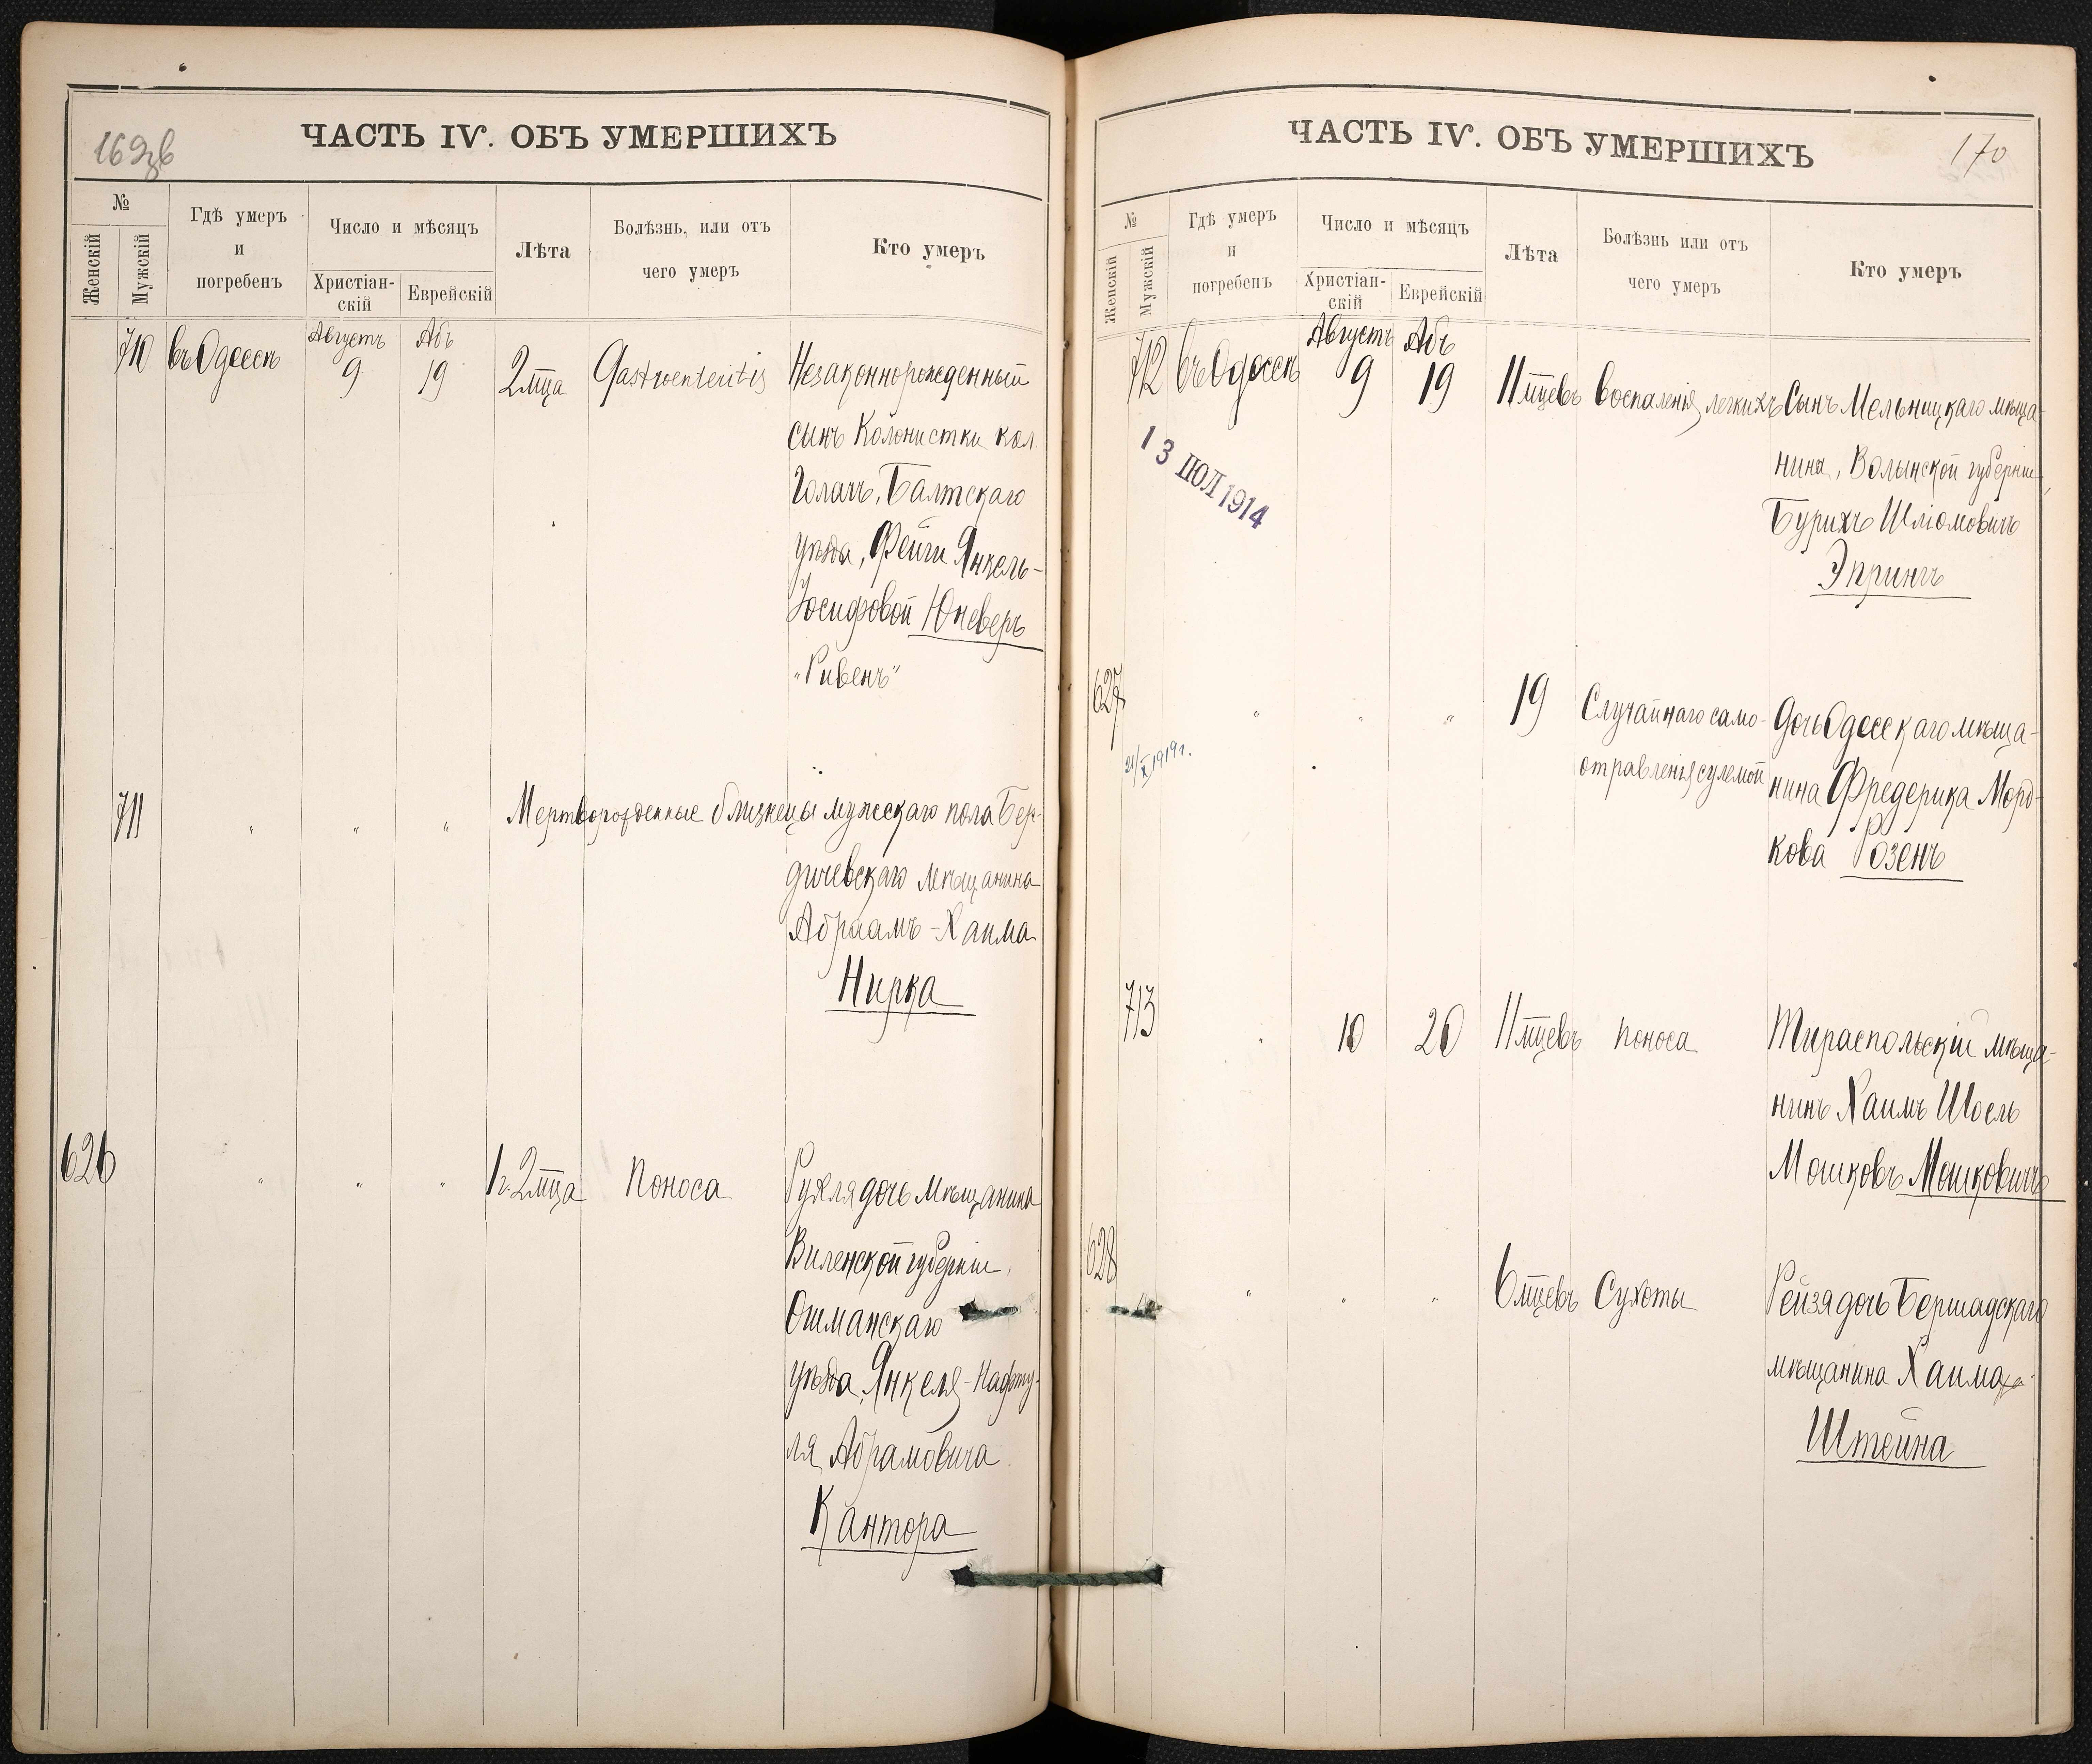 169зв
ЧАСТЬ IV. ОБЪ УМЕРШИХЪ
№
Женскій
Мужскій
Гдѣ умеръ
и
погребенъ
Число и мѣсяцъ
Христіан-
скій
Еврейскій
Лѣта
Болѣзнь, или отъ
чего умеръ
Кто умеръ
Августъ Абъ
710 въ Одессѣ 9 19 2 мца Gastroenteritis Незаконнорожденный
сынъ Колонистки кол.
Балтскаго
уѣзда, Фейги Янкель-
Іосифовой Юневеръ
"Рувенъ"
711 " " " Мертворожденные близнецы мужскаго пола Бер-
дичевскаго мѣщанина
Абраамъ-Хаима
Нирка
626 " " " 1 г. 2 мца Поноса Рухля дочь мѣщанина
Виленской губерніи,
Ошманскаго
уѣзда, Янкеля-Нафту-
ля Абрамовича
Кантора
170
ЧАСТЬ IV. ОБЪ УМЕРШИХЪ
№
Женскій
Мужскій
Гдѣ умеръ
и
погребенъ
Число и мѣсяцъ
Христіан-
скій
Еврейскій
Лѣта
Болѣзнь или отъ
чего умеръ
Кто умеръ
Августъ Абъ
712 въ Одессѣ 9 19 11 мцевъ воспаленія легкихъ Сынъ Мельницкаго мѣща-
нина, Волынской губерніи,
Бурихъ Шліомовичъ
Эпринъ
13 ІЮЛ 1914
627 " " " 19 Случайнаго само- Дочь Одесскаго мѣща-
отравленія сулемой нина Фредерика Морд-
21/X 1919 г.
кова Розенъ
713 " 10 20 11 мцевъ поноса Тираспольскій мѣща-
нинъ Хаимъ Шоель
Мошковъ Мошковичъ
628 " " " 6 мцевъ Сухоты Рейзя дочь Бершадскаго
мѣщанина Хаима
Штейна